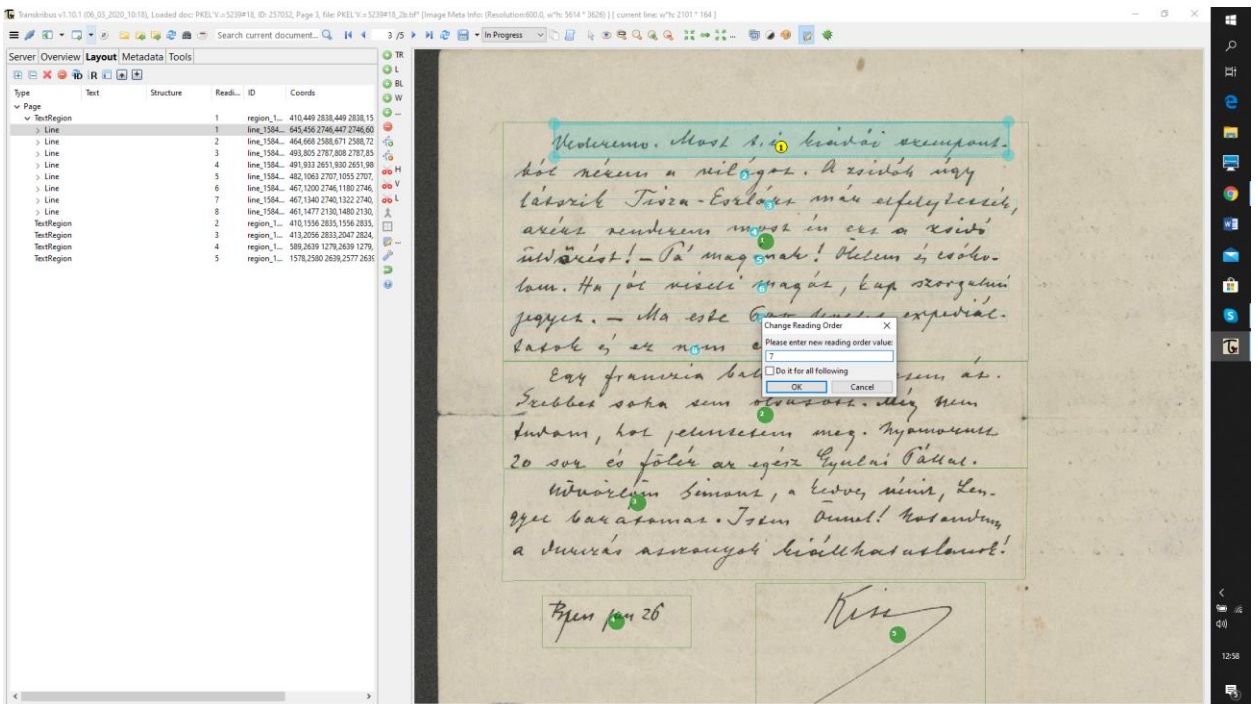 Transkribus v1.10.1 (06_03_2020_10:18), Loaded doc: PKEL V.=5239#18, ID: 257032, Page 3, file: PKEL V.=5239#18_2b.tif* [Image Meta Info: (Resolution:600.0, w*h: 5614 * 3626) ] [ current line: w*h: 2101 * 164 ]
Search current document... 3 /5 In Progress
Server Overview Layout Metadata Tools
Type Text Structure Readi... ID Coords
Page
TextRegion 1 region_1... 410,449 2838,449 2838,15
Line 1 line_1584... 645,456 2746,447 2746,60
Line 2 line_1584... 464,668 2588,671 2588,72
Line 3 line_1584... 493,805 2787,808 2787,85
Line 4 line_1584... 491,933 2651,930 2651,98
Line 5 line_1584... 482,1063 2707,1055 2707,
Line 6 line_1584... 467,1200 2746,1180 2746,
Line 7 line_1584... 467,1340 2740,1322 2740,
Line 8 line_1584... 461,1477 2130,1480 2130,
TextRegion 2 region_1... 410,1556 2835,1556 2835,
TextRegion 3 region_1... 413,2056 2833,2047 2824,
TextRegion 4 region_1... 589,2639 1279,2639 1279,
TextRegion 5 region_1... 1578,2580 2639,2577 2639
TR
L
BL
W
...
H
V
L
...
Vederemo. Most s. é kiadói szempont-
ból nézem a világot. A zsidók úgy
látszik Tisza-Eszlárt már elfelejtették,
azért rendezem most én ezt a zsidó
üldözést! - Pá magának! Ölelem és csóko-
lom. Ha jól viseli magát, kap szorgalmi
jegyet. - Ma este
és ez nem
Egy franczia át.
Szebbet soha sem olvasott. Még nem
tudom, hol jelentetem meg. Nyomorult
20 sor és fölér az egész Gyulai Pállal.
Üdvözlöm Simont, a kedves nénit, Len-
gyel barátomat. Isten Önnel!
a asszonyok kiállhatatlanok!
Bpen jan 26
Kiss
Change Reading Order
Please enter new reading order value:
7
Do it for all following
OK Cancel
12:58